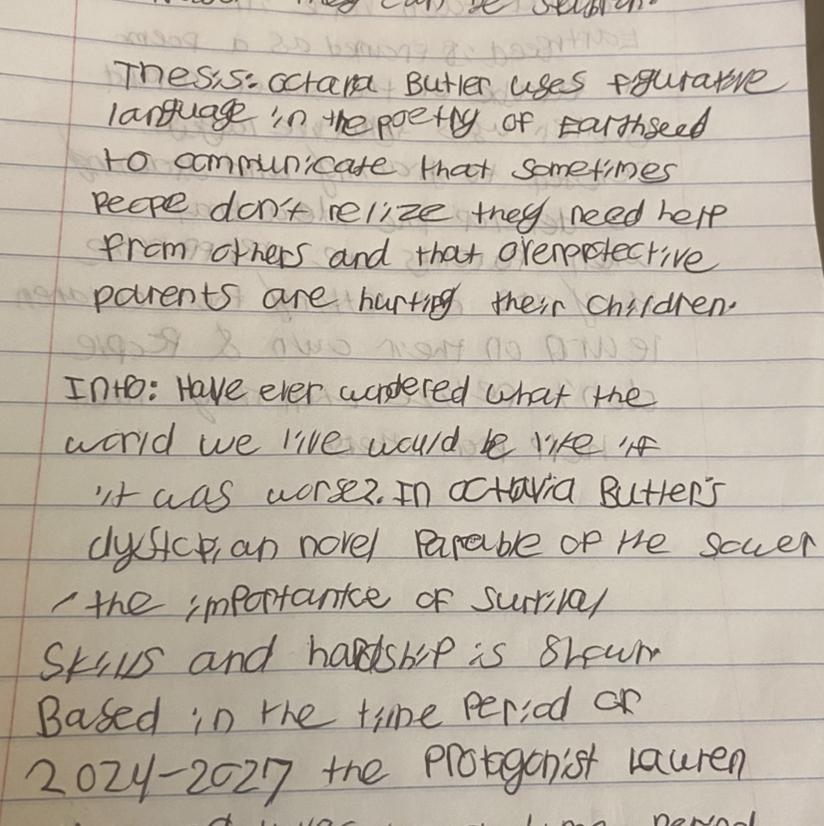 they can be
Thesis: Octavia Butler uses figurative
language in the poetry of Earthseed
to communicate that sometimes
peope don't relize they need help
from others and that overprotective
parents are hurting their children.
Intro: Have ever wondered what the
world we live would be like if
it was worse?. In Octavia Butler's
dystopian novel Parable of the Sower
, the importantce of survival
skills and hardship is shown
Based in the time period of
2024-2027 the protagonist Lauren
time period